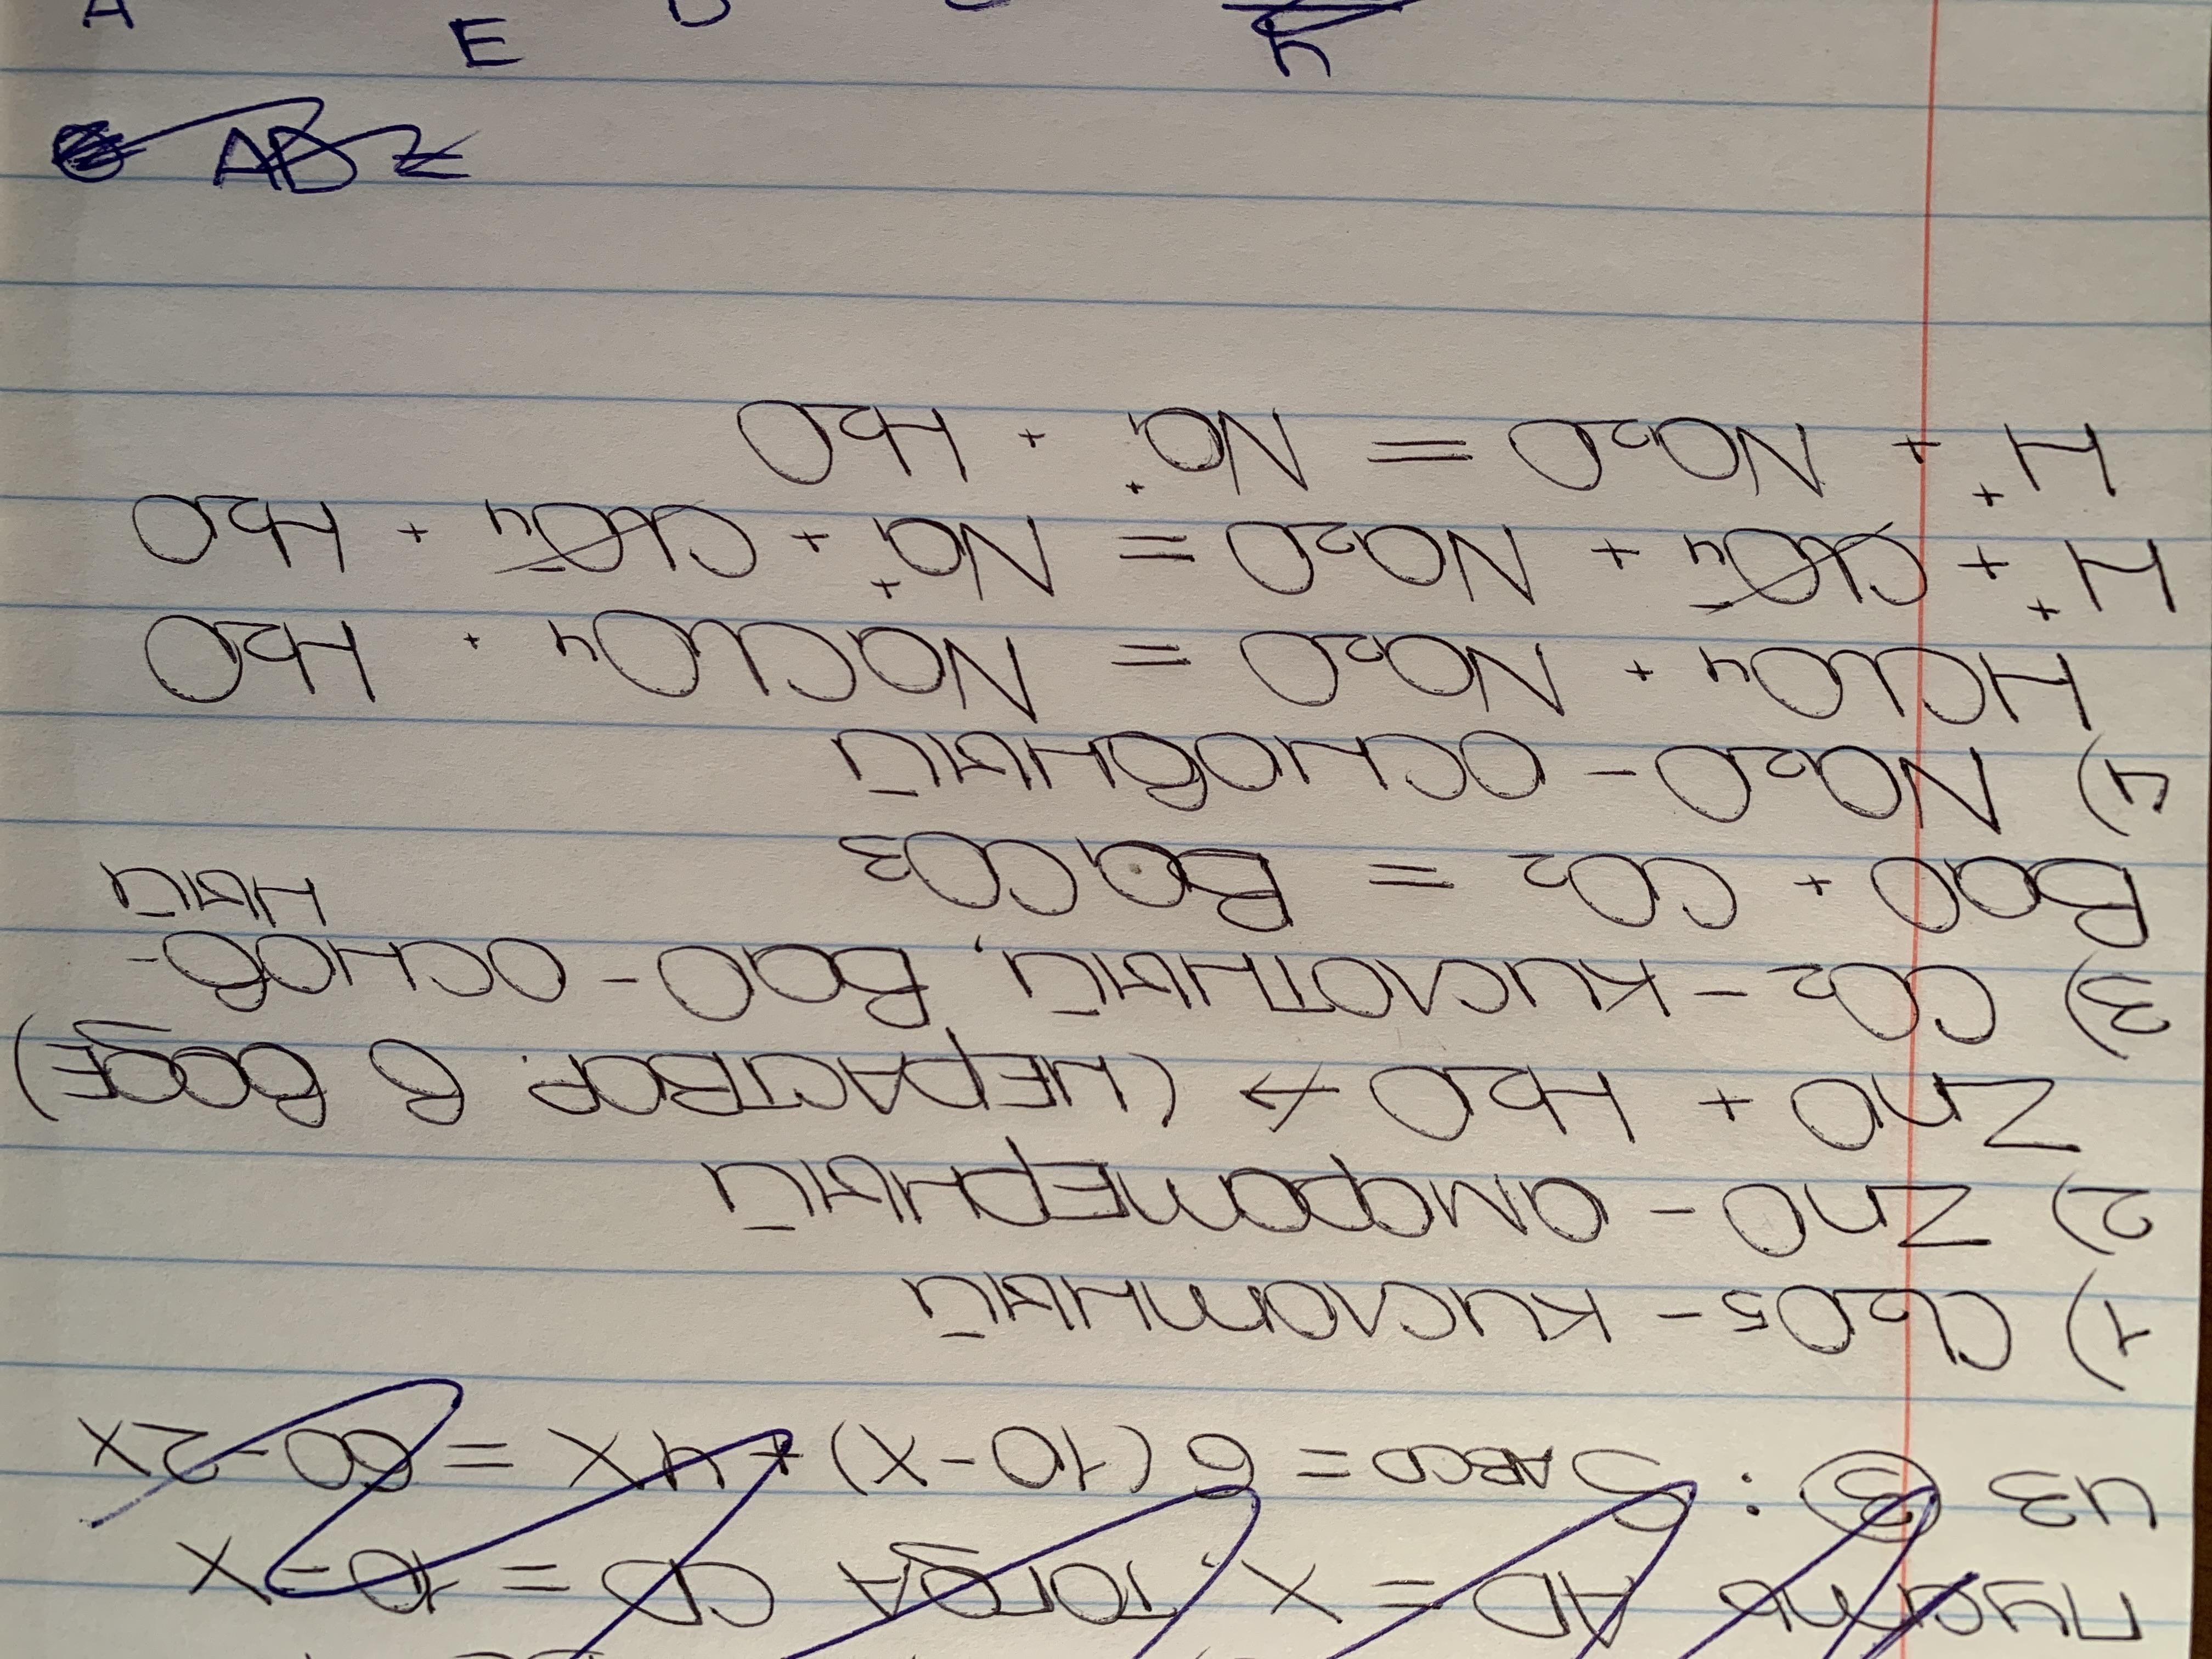 Пусть AD = x, тогда CD = 10-x
из ③: S ABCD = 6(10-x)+4x = 60-2x
1) Cl2O5 - кислотный
2) ZnO - амфотерный
ZnO + H2O ↛ (НЕРАСТВОР. в воде)
3) CO2 - кислотный, BaO - основ-
ный
BaO + CO2 = BaCO3
4) Na2O - основный
HClO4 + Na2O = NaClO4 + H2O
H⁺ + ClO4⁻ + Na2O = Na⁺ + ClO4⁻ + H2O
H⁺ + Na2O = Na⁺ + H2O
AB =
E